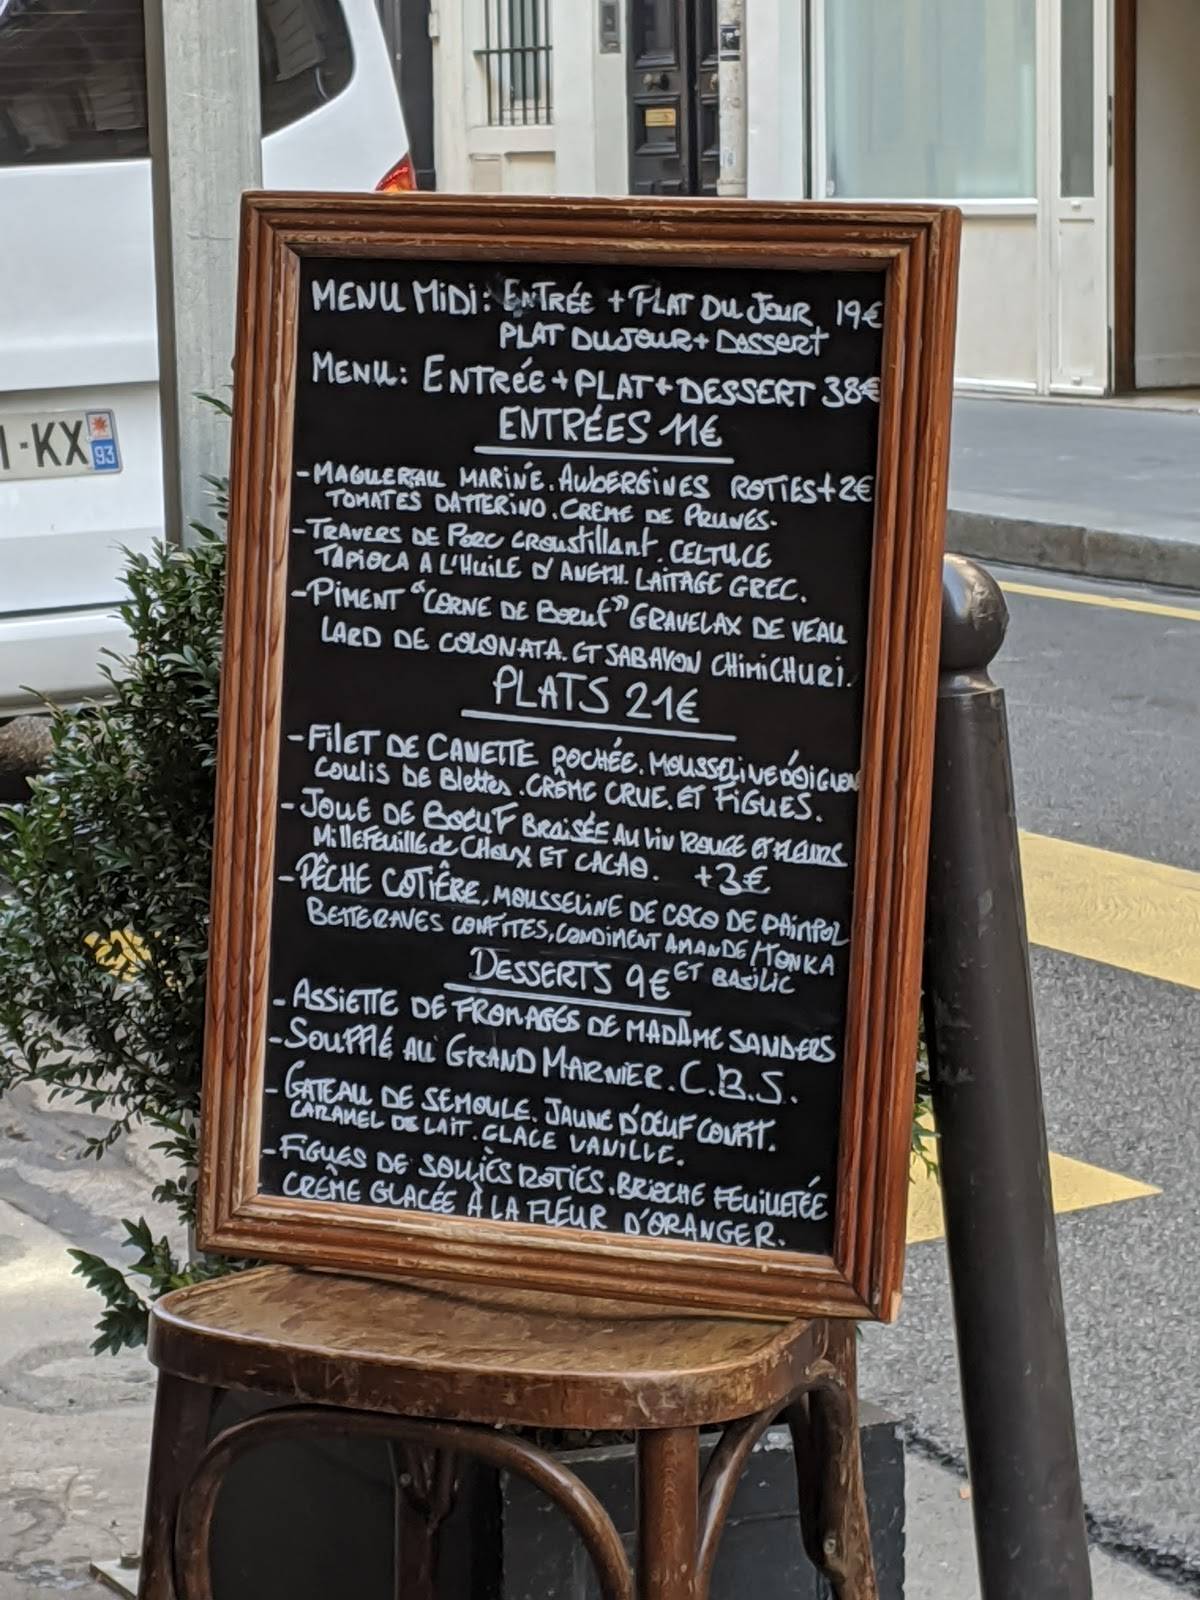 MENU MiDi: ENTRÉE + PLAT DU JOUR 19€
PLAT DU JOUR + DESSERT
MENU: ENTRÉE + PLAT + DESSERT 38€
ENTRÉES 11€
- MAQUEREAU MARINÉ. AUBERGINES ROTIES +2€
TOMATES DATTERINO. CRÈME DE PRUNES.
- TRAVERS DE PORC CROUSTILLANT. CELTUCE
TAPIOCA A L'HUILE D'ANETH. LAITAGE GREC.
- PIMENT "CORNE DE BOEUF" GRAVELAX DE VEAU
LARD DE COLONATA. ET SABAYON CHIMICHURI.
PLATS 21€
- FILET DE CANETTE POCHÉE. MOUSSELINE D'OIGNON
COULIS DE Blettes. CRÈME CRUE. ET FIGUES.
- JOUE DE BOEUF BRAISÉE AU VIN ROUGE ET FLEURS
MILLEFEUILLE de CHOUX ET CACAO. +3€
- PÊCHE COTIÈRE, MOUSSELINE DE COCO DE PAIMPOL
BETTERAVES CONFITES, CONDIMENT AMANDE/TONKA
ET BASILIC
DESSERTS 9€
- ASSIETTE DE FROMAGES DE MADAME SANDERS
- SOUFFLÉ AU GRAND MARNIER. C.B.S.
- GATEAU DE SEMOULE. JAUNE D'OEUF CONFIT.
CARAMEL DE LAIT. GLACE VANILLE.
- FIGUES DE SOLLIÈS ROTIES. BRIOCHE FEUILLETÉE
CRÈME GLACÉE À LA FLEUR D'ORANGER.
-KX
93